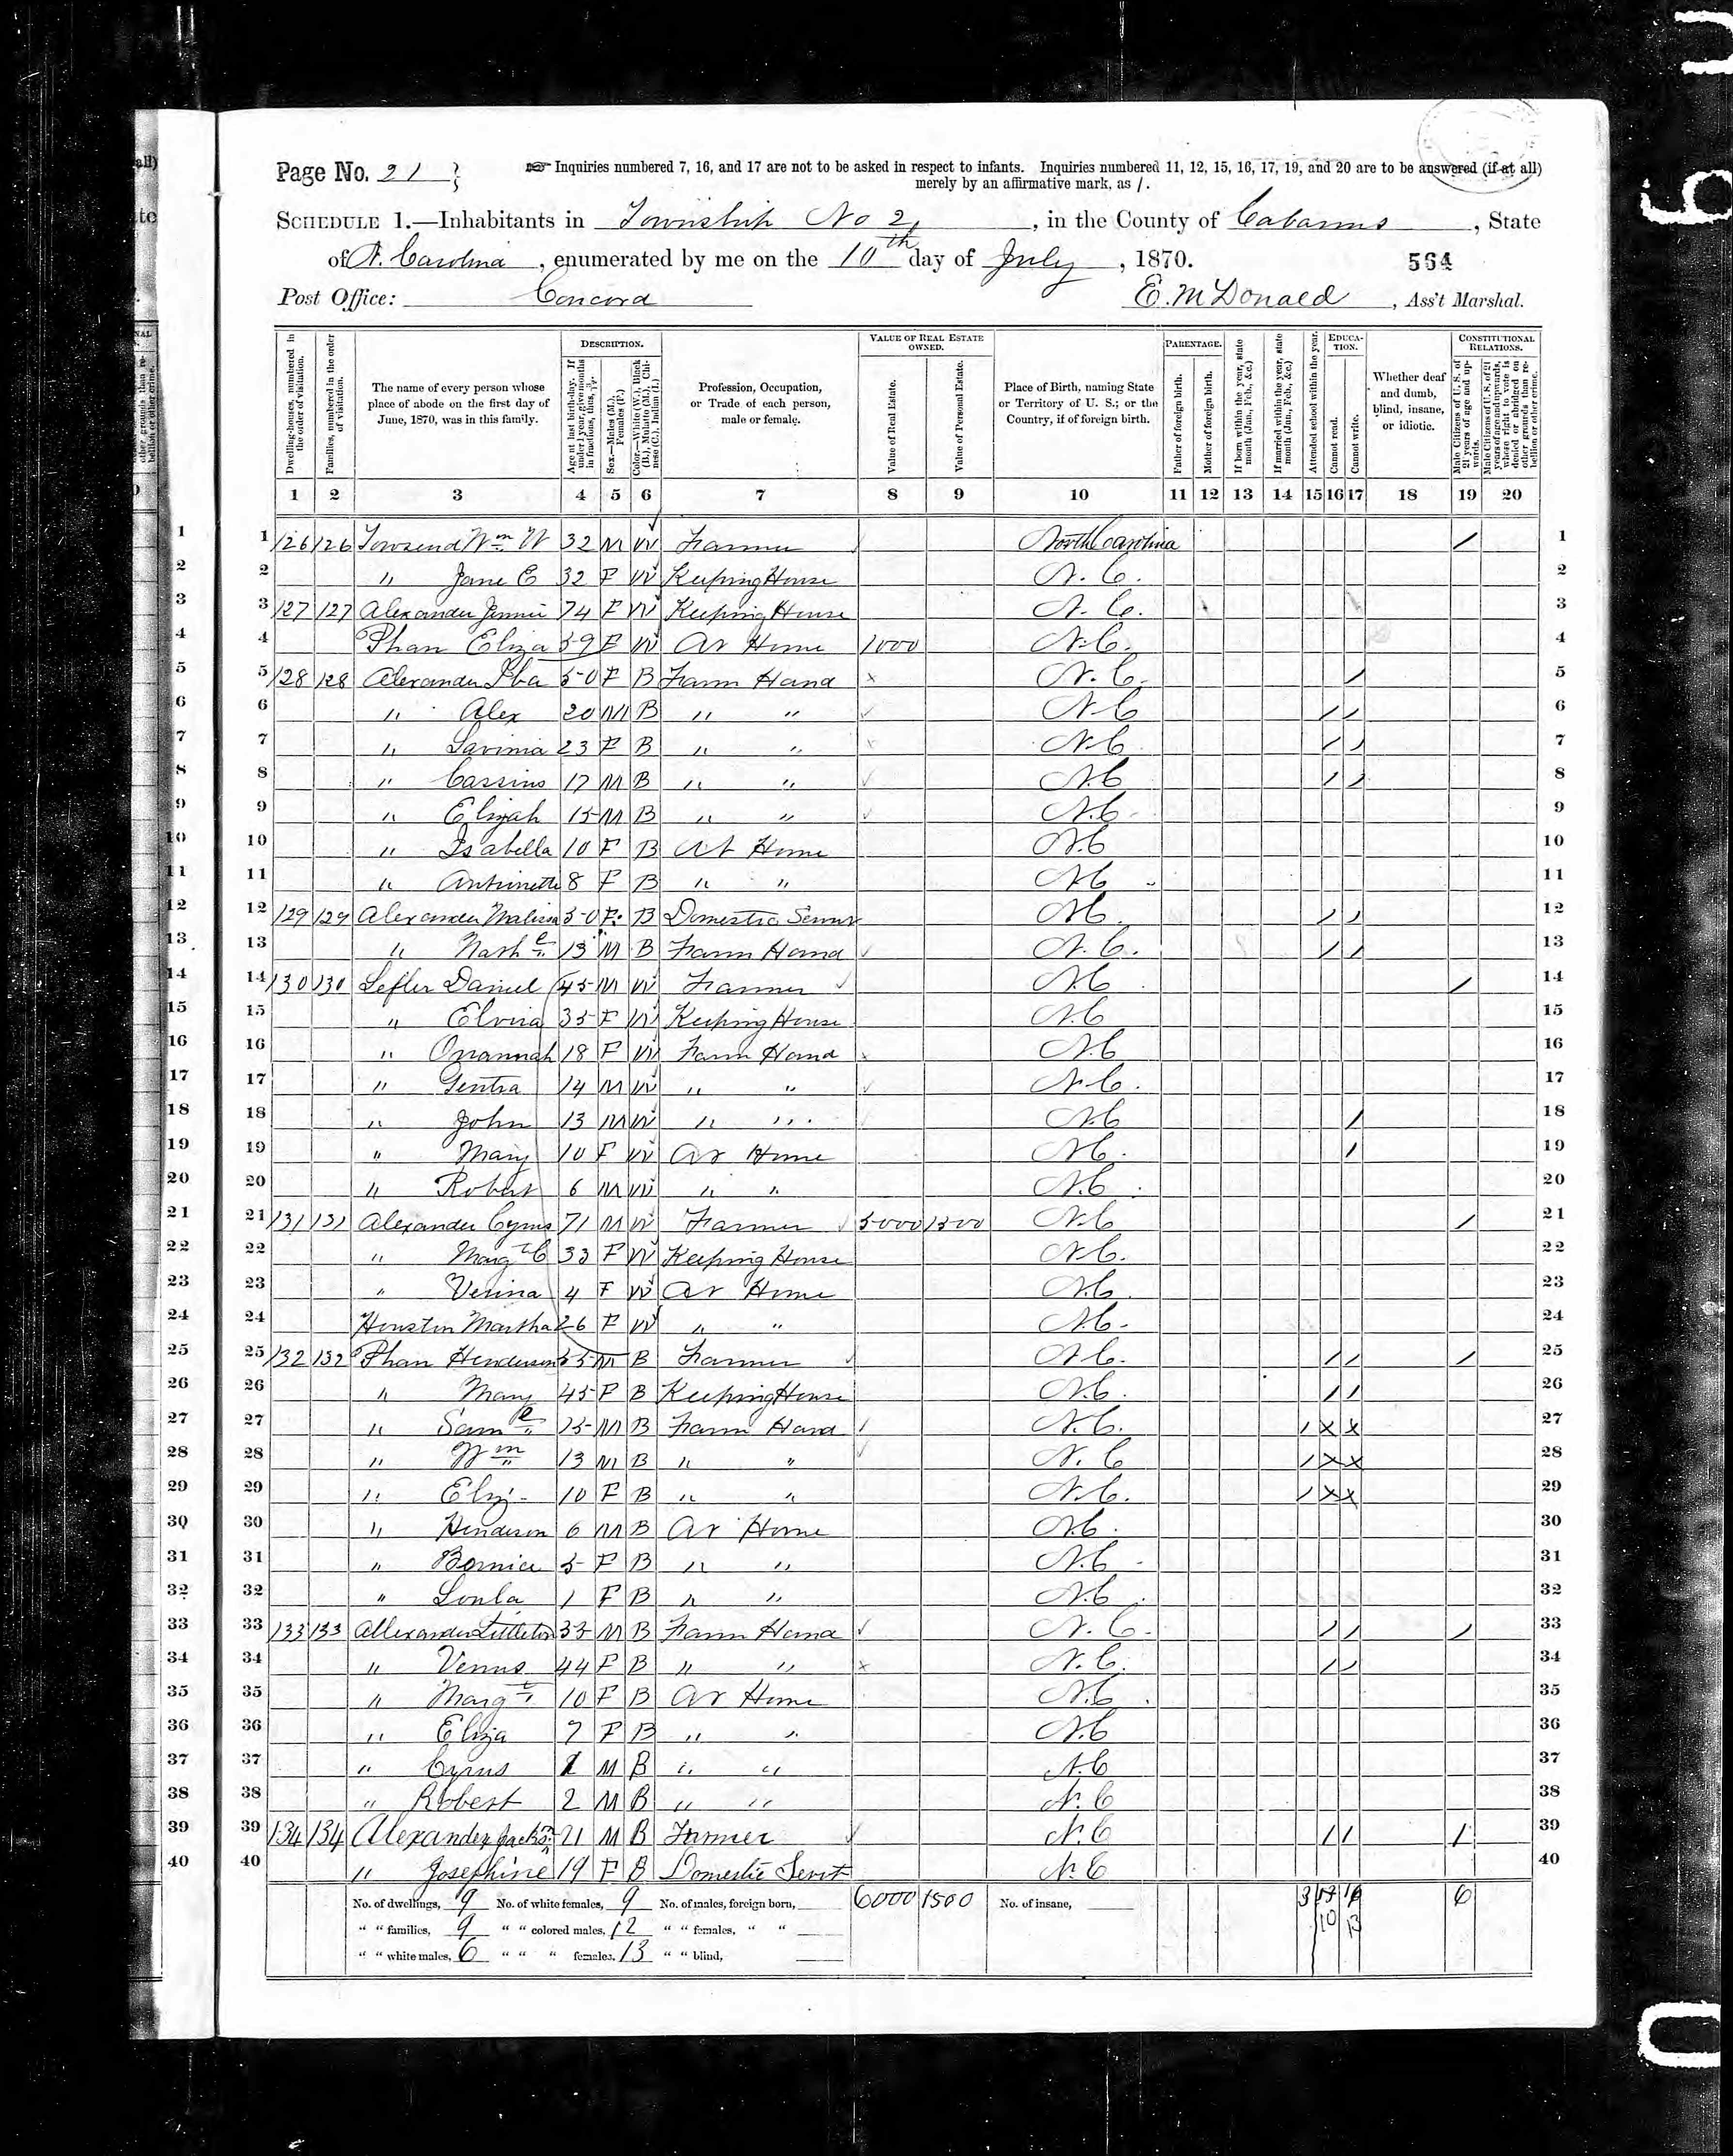 Page No. 21
Inquiries numbered 7, 16, and 17 are not to be asked in respect to infants. Inquiries numbered 11, 12, 15, 16, 17, 19, and 20 are to be answered (if at all)
merely by an affirmative mark, as /.
SCHEDULE 1.—Inhabitants in Township No 2, in the County of Cabarrus, State
of N. Carolina, enumerated by me on the 10th day of July, 1870.
564
Post Office: Concord
E. McDonald, Ass't Marshal.
Dwelling-houses, numbered in the order of visitation.
Families, numbered in the order of visitation.
The name of every person whose place of abode on the first day of June, 1870, was in this family.
DESCRIPTION.
Age at last birth-day. If under 1 year, give months in fractions, thus, 3/12.
Sex.—Males (M.), Females (F.)
Color.—White (W.), Black (B.), Mulatto (M.), Chinese (C.), Indian (I.)
Profession, Occupation, or Trade of each person, male or female.
VALUE OF REAL ESTATE OWNED.
Value of Real Estate.
Value of Personal Estate.
Place of Birth, naming State or Territory of U. S.; or the Country, if of foreign birth.
PARENTAGE.
Father of foreign birth.
Mother of foreign birth.
If born within the year, state month (Jan., Feb., &c.)
If married within the year, state month (Jan., Feb., &c.)
Attended school within the year.
EDUCATION.
Cannot read.
Cannot write.
Whether deaf and dumb, blind, insane, or idiotic.
CONSTITUTIONAL RELATIONS.
Male Citizens of U. S. of 21 years of age and upwards.
Male Citizens of U. S. of 21 years of age and upwards, whose right to vote is denied or abridged on other grounds than rebellion or other crime.
1 2 3 4 5 6 7 8 9 10 11 12 13 14 15 16 17 18 19 20
1 126 126 Townsend Wm W 32 M W Farmer North Carolina / 1
2 " Jane E 32 F W Keeping House N. C. 2
3 127 127 Alexander Jennie 74 F W Keeping House N. C. 3
4 Phar Eliza 59 F W At Home 1000 N.C. 4
5 128 128 Alexander 50 F B Farm Hand x N. C. / 5
6 " Alex 20 M B " " ✓ N C / / 6
7 " Lavinia 23 F B " " x N.C / / 7
8 " Cassius 17 M B " " ✓ N.C / / 8
9 " Elijah 15 M B " " ✓ N.C 9
10 " Isabella 10 F B At Home N.C 10
11 " Antoinette 8 F B " " N.C 11
12 129 129 Alexander Malissa 50 F B Domestic Servt N.C. / / 12
13 " 13 M B Farm Hand ✓ N. C. / / 13
14 130 130 Lefler Daniel 45 M W Farmer ✓ N.C / 14
15 " Elvira 35 F W Keeping House N.C 15
16 " 18 F W Farm Hand x N.C 16
17 " 14 M W " " ✓ N.C. 17
18 " John 13 M W " " N.C / 18
19 " Mary 10 F W At Home N.C. / 19
20 " Robert 6 M W " " N.C 20
21 131 131 Alexander Cyrus 71 M W Farmer ✓ 5000 1500 N.C / 21
22 " Margt C 33 F W Keeping House N.C. 22
23 " Verina 4 F W At Home N.C. 23
24 Houston Martha 26 F W " " N.C. 24
25 132 132 Phar Henderson 55 M B Farmer ✓ N C. / / / 25
26 " Mary 45 F B Keeping House N.C. / / 26
27 " Saml 15 M B Farm Hand ✓ N. C. / x x 27
28 " Wm 13 M B " " ✓ N. C / x x 28
29 " Eliz 10 F B " " N.C. / x x 29
30 " Henderson 6 M B At Home N.C. 30
31 " 5 F B " " N.C 31
32 " Loula 1 F B " " N.C. 32
33 133 133 Allexander Littleton 33 M B Farm Hand ✓ N. C. / / / 33
34 " Venus 44 F B " " x N. C. / / 34
35 " Margt 10 F B At Home N.C. 35
36 " Eliza 7 F B " " N.C 36
37 " Cyrus M B " " N.C 37
38 " Robert 2 M B " " N. C 38
39 134 134 Alexander Jackson 21 M B Farmer ✓ N.C / / / 39
40 " Josephine 19 F B Domestic Servt N.C 40
No. of dwellings, 9 No. of white females, 9 No. of males, foreign born, 6000 1500 No. of insane, 3 6
" " families, 9 " " colored males, 12 " " females, " " 10 13
" " white males, 6 " " " females, 13 " " blind,